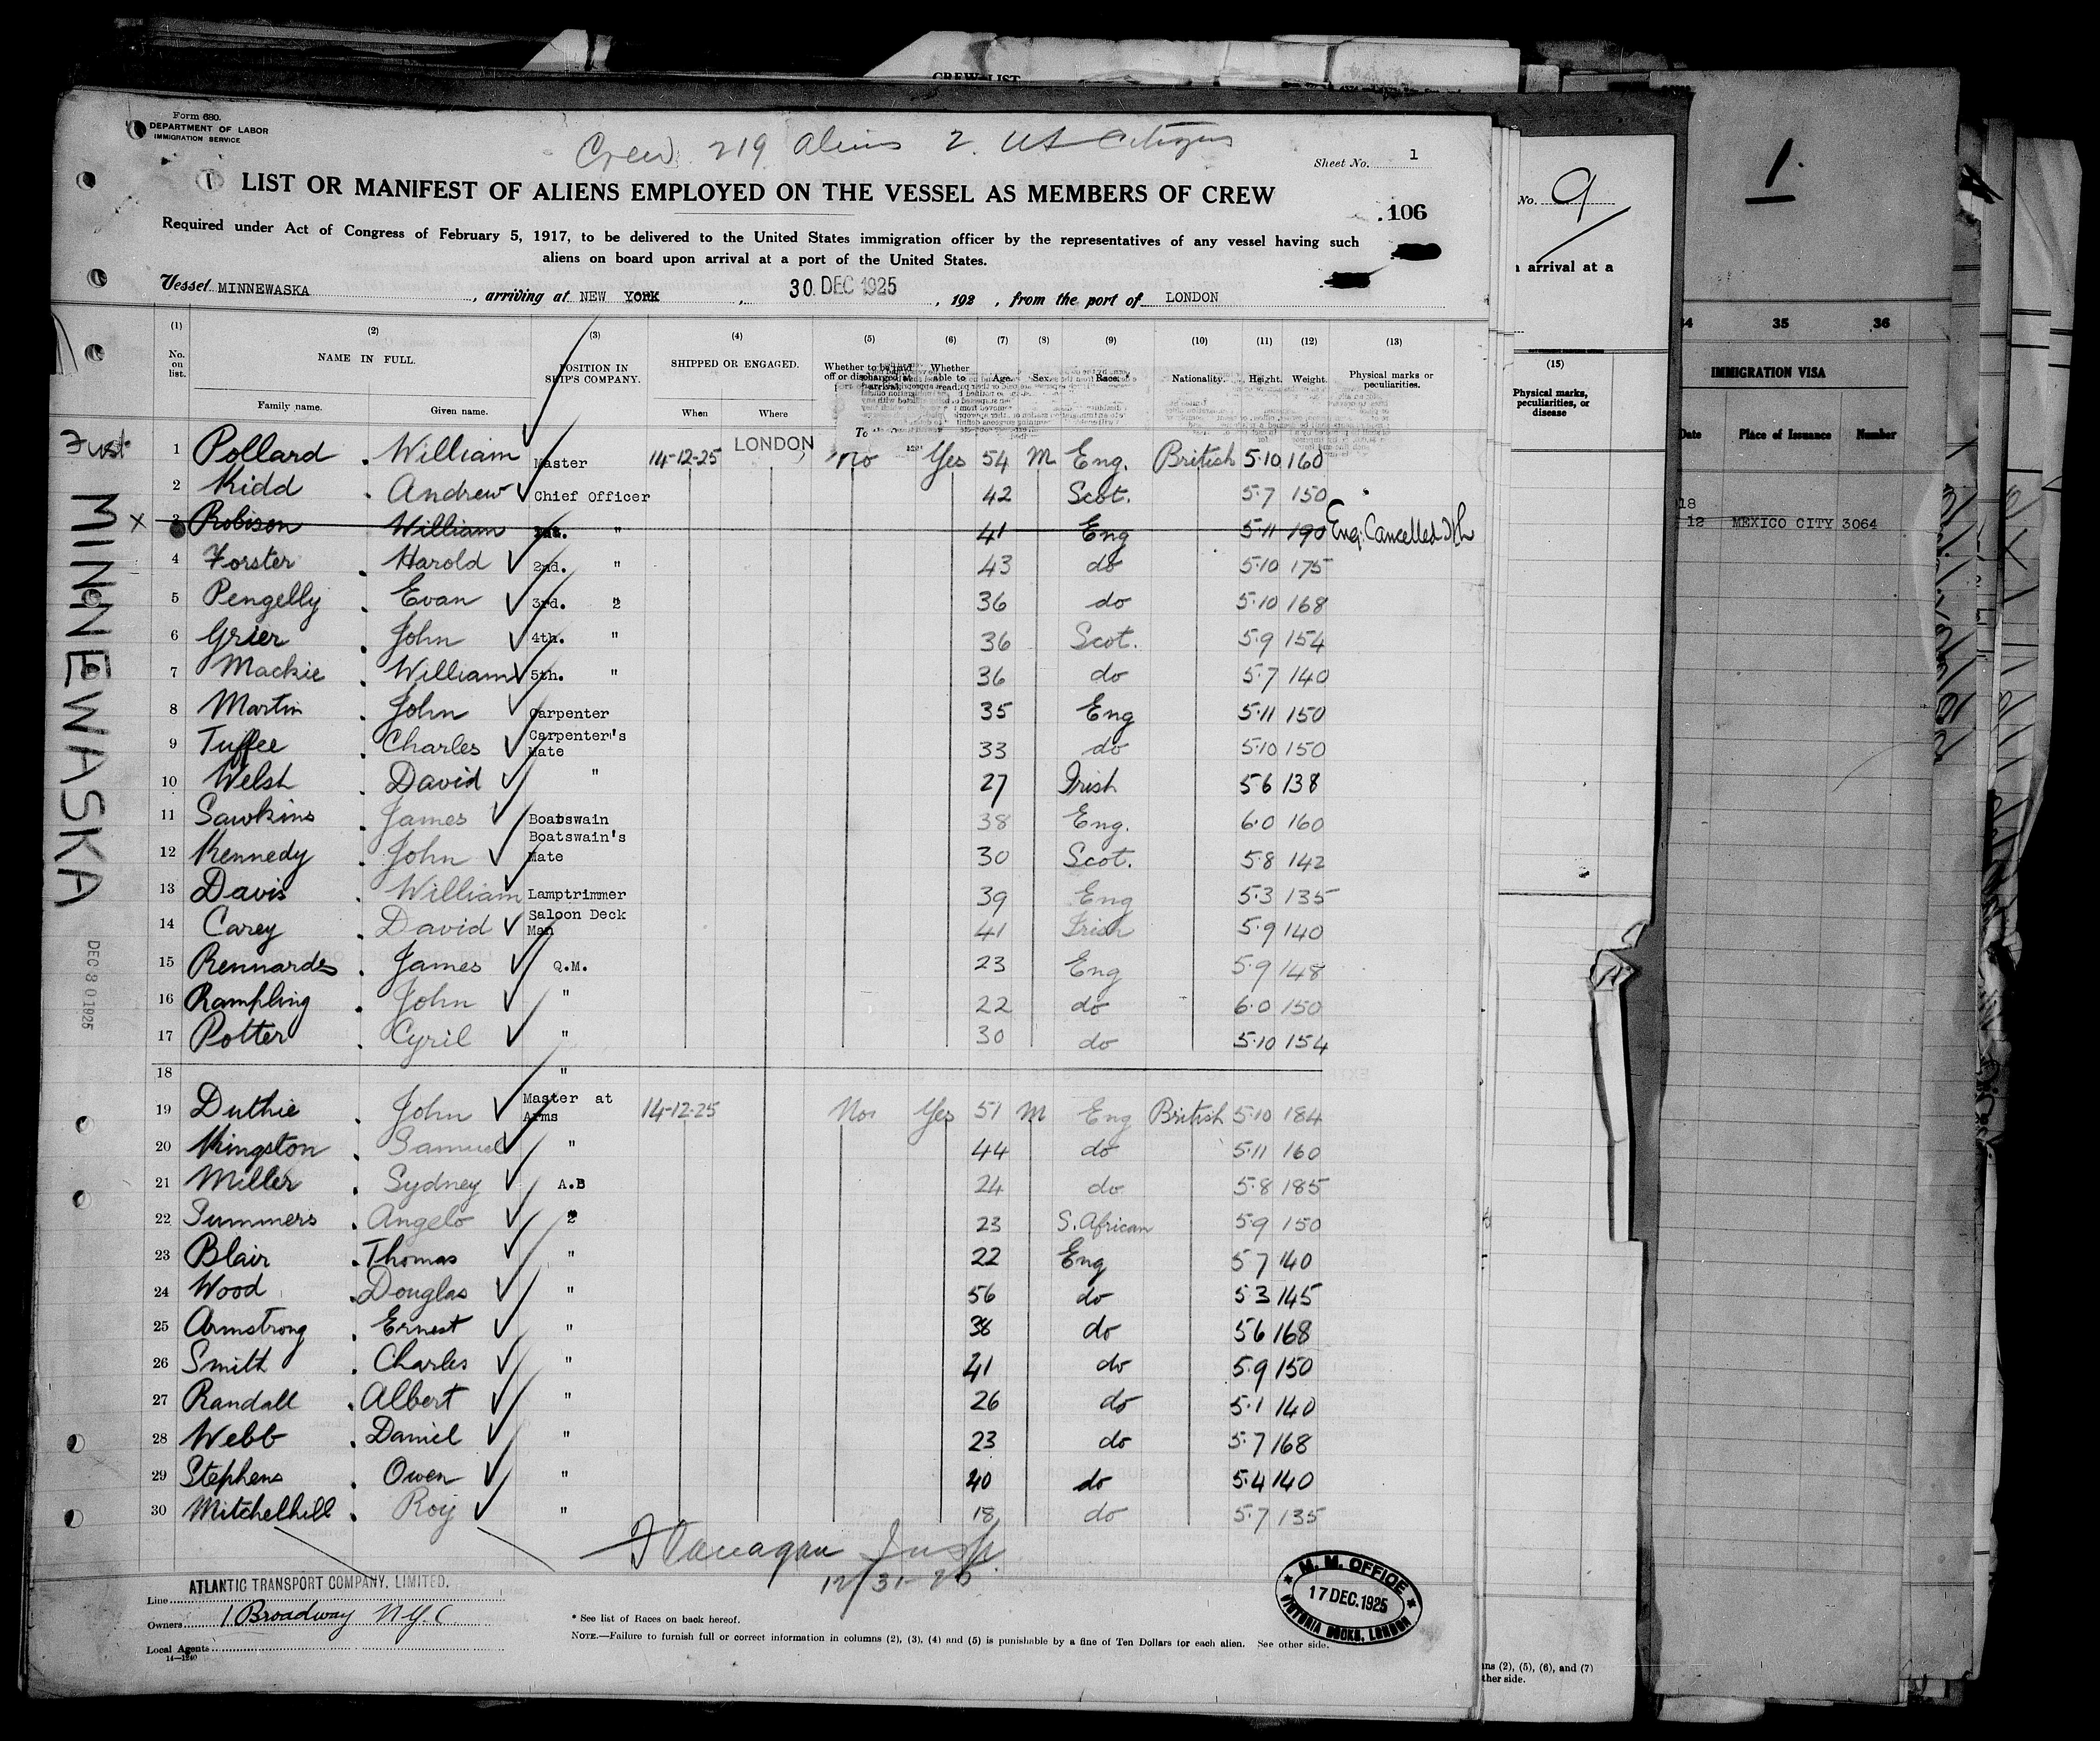 CREW LIST
Form 680.
DEPARTMENT OF LABOR
IMMIGRATION SERVICE
Crew 219 Aliens 2. US Citizens
Sheet No. 1
LIST OR MANIFEST OF ALIENS EMPLOYED ON THE VESSEL AS MEMBERS OF CREW
.106
Required under Act of Congress of February 5, 1917, to be delivered to the United States immigration officer by the representatives of any vessel having such
aliens on board upon arrival at a port of the United States.
Vessel MINNEWASKA, arriving at NEW YORK, 30 DEC 1925, 192 , from the port of LONDON
(1) (2) (3) (4) (5) (6) (7) (8) (9) (10) (11) (12) (13)
No. on list. NAME IN FULL. POSITION IN SHIP'S COMPANY. SHIPPED OR ENGAGED. Whether to be paid off or discharged at arrival. Whether able to read. Age. Sex. Race.* Nationality. Height. Weight. Physical marks or peculiarities.
Family name. Given name. When Where
LONDON
1 Pollard . William Master 14-12-25 No Yes 54 M Eng. British 5·10 160
2 Kidd . Andrew Chief Officer 42 Scot. 5·7 150
X 3 Robison William 2nd. " 41 Eng 5·11 190 Eng. Cancelled
4 Forster . Harold 2nd. " 43 do 5·10 175
5 Pengelly . Evan 3rd. " 36 do 5·10 168
6 Grier . John 4th. " 36 Scot. 5·9 154
7 Mackie . William 5th. " 36 do 5·7 140
8 Martin . John Carpenter 35 Eng 5·11 150
9 Tuffee . Charles Carpenter's Mate 33 do 5·10 150
10 Welsh . David " 27 Irish 5 6 138
11 Sawkins . James Boatswain 38 Eng. 6·0 160
12 Kennedy . John Boatswain's Mate 30 Scot. 5·8 142
13 Davis . William Lamptrimmer 39 Eng 5·3 135
14 Carey . David Saloon Deck Man 41 Irish 5·9 140
15 Rennardes . James Q.M. 23 Eng 5·9 148
16 Rampling . John " 22 do 6·0 150
17 Potter . Cyril " 30 do 5·10 154
18 "
19 Duthie . John Master at Arms 14-12-25 No Yes 51 M Eng British 5·10 184
20 Kingston . Samuel " 44 do 5·11 160
21 Miller . Sydney A.B 24 do 5·8 185
22 Summers . Angelo " 23 S. African 5·9 150
23 Blair . Thomas " 22 Eng 5 7 140
24 Wood . Douglas " 56 do 5 3 145
25 Armstrong . Ernest " 38 do 5 6 168
26 Smith . Charles " 41 do 5·9 150
27 Randall . Albert " 26 do 5·1 140
28 Webb . Daniel " 23 do 5·7 168
29 Stephens . Owen " 40 do 5·4 140
30 Mitchelhill . Roy " 18 do 5·7 135
Flanagan Insp.
12/31-25
Line ATLANTIC TRANSPORT COMPANY, LIMITED.
Owners 1 Broadway N.Y.C
Local Agents
14—1240
* See list of Races on back hereof.
NOTE.—Failure to furnish full or correct information in columns (2), (3), (4) and (5) is punishable by a fine of Ten Dollars for each alien. See other side.
M. M. OFFICE
17 DEC. 1925
VICTORIA DOCKS, LONDON
First
MINNEWASKA
DEC 30 1925
No. 9
arrival at a
(15)
Physical marks, peculiarities, or disease
ns (2), (5), (6), and (7)
ther side.
1.
34 35 36
IMMIGRATION VISA
Date Place of Issuance Number
18
12 MEXICO CITY 3064